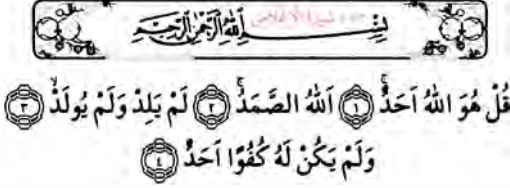 بِسْمِ اللّٰهِ الرَّحْمٰنِ الرَّحِيْمِ
قُلْ هُوَ اللّٰهُ اَحَدٌۚ ﴿١﴾ اَللّٰهُ الصَّمَدُۚ ﴿٢﴾ لَمْ يَلِدْ وَلَمْ يُولَدْۙ ﴿٣﴾
وَلَمْ يَكُنْ لَهُ كُفُوًا اَحَدٌ ﴿٤﴾